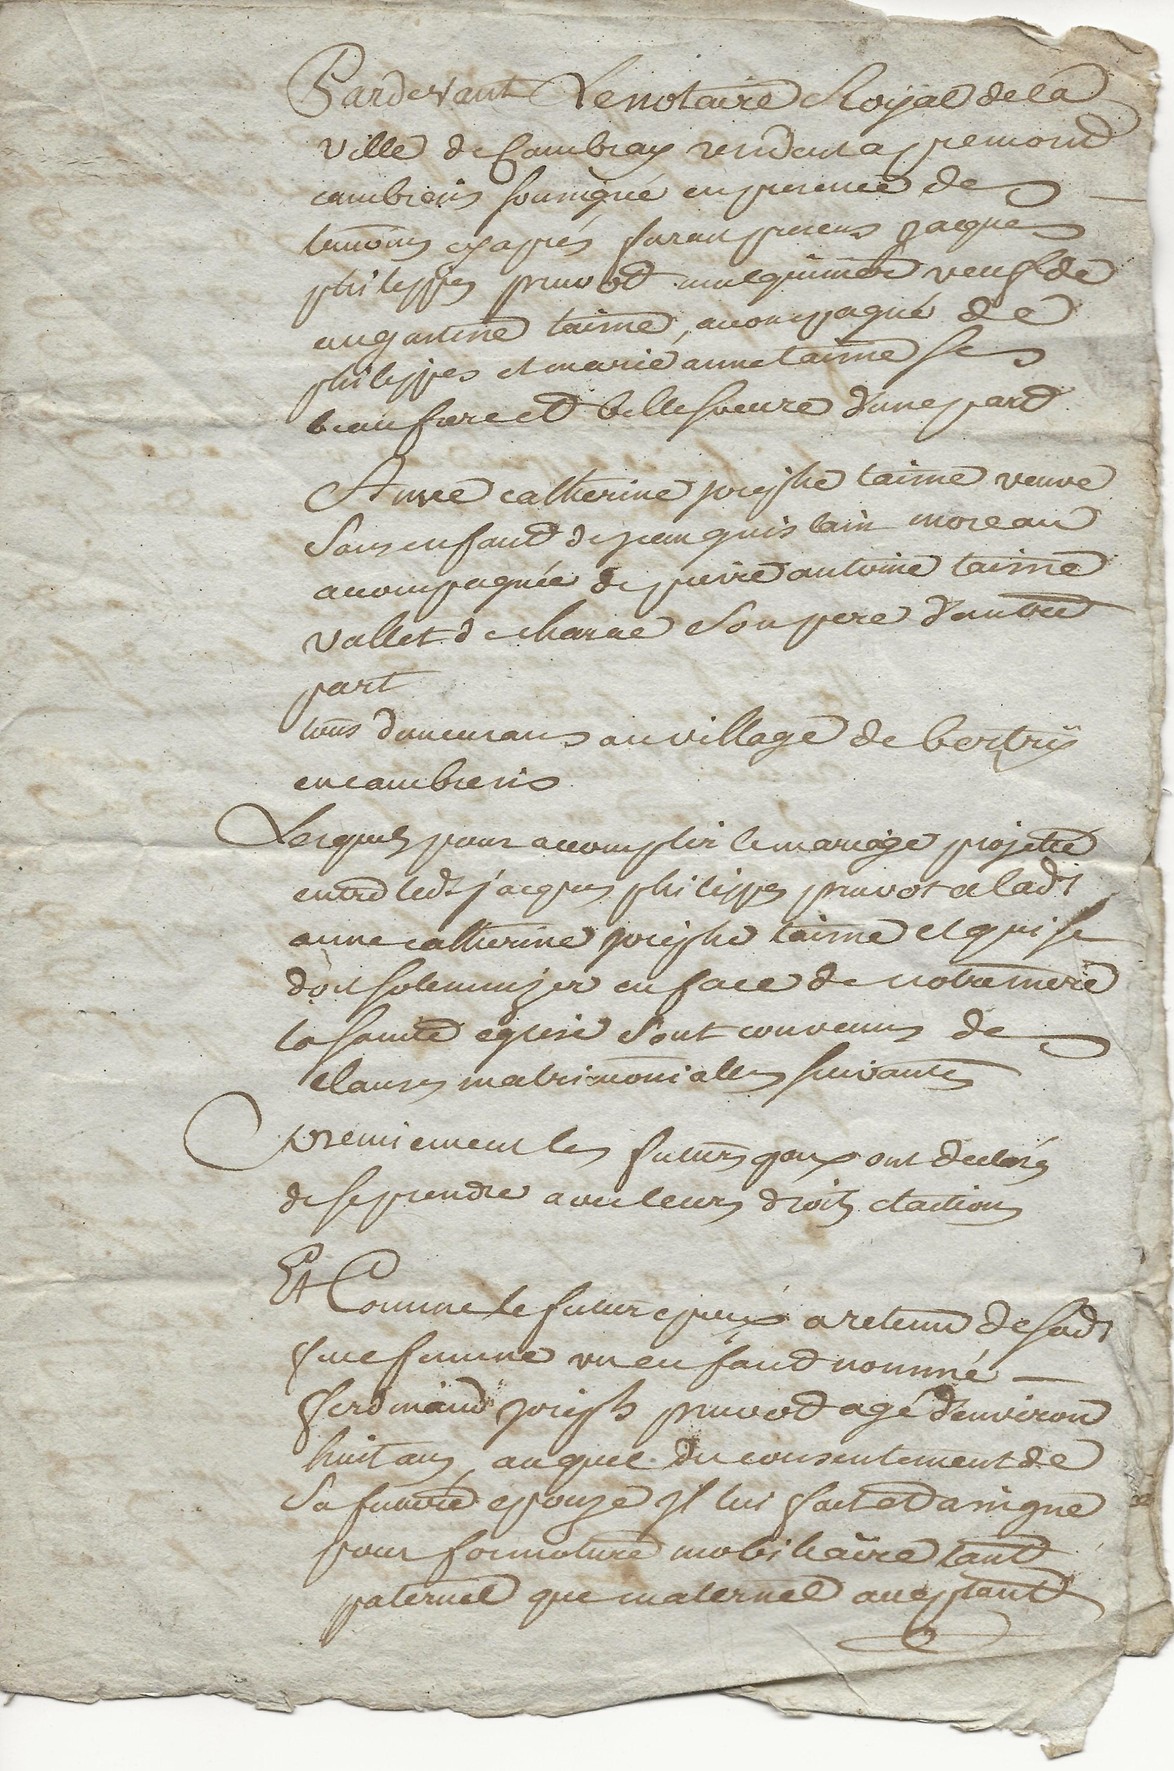 Pardevant Le notaire Royal de la
ville de Cambray residant a premond
cambresis sousigné en presence des
temoins cy apres furent presens jacques
philippes pruvot mulquinier veuf de
augustine taime, acompagné de
philippes et marie anne taime ses
beau frere et belle soeure d'une part
Anne catherine josephe taime veuve
sans enfant de jean guislain moreau
acompagnée de pierre antoine taime
vallet de charue son pere d'autre
part
tous demeurans au village de bertry
en cambresis
Lesquels pour acomplir le mariage projetté
entre ledt jacques philippes pruvot et ladt
anne catherine josephe taime et qui se
doit solemnizer en face de notre mere
la sainte eglise sont convenus des
clauses matrimonialles suivantes
premierement les futurs epoux ont declarés
de se prendre avec leurs droits et actions
Et Comme le futur epoux a retenu de sadt
feue femme un enfant nommé
ferdinand joseph pruvot agé d'environ
huit ans, auquel du consentement de
sa future epouze il lui fait et assigne
pour formoture mobiliaire tant
paternel que maternel aceptant